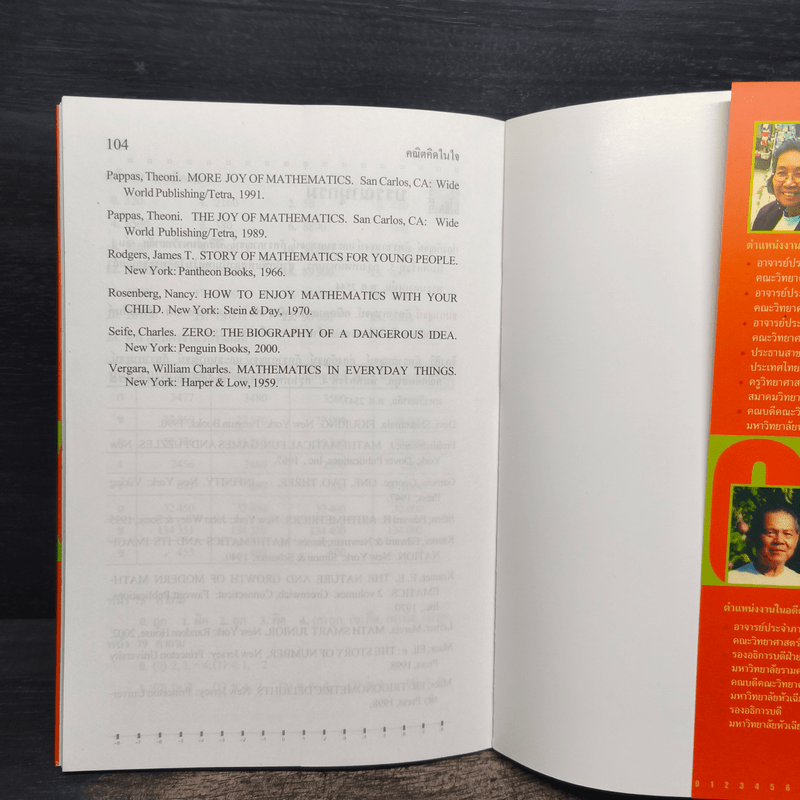 104
คณิตคิดในใจ
Pappas, Theoni. MORE JOY OF MATHEMATICS. San Carlos, CA: Wide
World Publishing/Tetra, 1991.
Pappas, Theoni. THE JOY OF MATHEMATICS. San Carlos, CA: Wide
World Publishing/Tetra, 1989.
Rodgers, James T. STORY OF MATHEMATICS FOR YOUNG PEOPLE.
New York: Pantheon Books, 1966.
Rosenberg, Nancy. HOW TO ENJOY MATHEMATICS WITH YOUR
CHILD. New York: Stein & Day, 1970.
Seife, Charles. ZERO: THE BIOGRAPHY OF A DANGEROUS IDEA.
New York: Penguin Books, 2000.
Vergara, William Charles. MATHEMATICS IN EVERYDAY THINGS.
New York: Harper & Low, 1959.
ตำแหน่งงาน
อาจารย์ประ
คณะวิทยา
อาจารย์ประ
คณะวิทยา
อาจารย์ประ
คณะวิทยาศ
ประธานสาข
ประเทศไทย
ครูวิทยาศาส
สมาคมวิทยา
คณบดีคณะวิ
มหาวิทยาลัยห
ตำแหน่งงานในอดีต
อาจารย์ประจำภา
คณะวิทยาศาสตร์
รองอธิการบดีฝ่าย
มหาวิทยาลัยราม
คณบดีคณะวิทยา
มหาวิทยาลัยหัวเฉีย
รองอธิการบดี
มหาวิทยาลัยหัวเฉีย
0 1 2 3 4 5 6